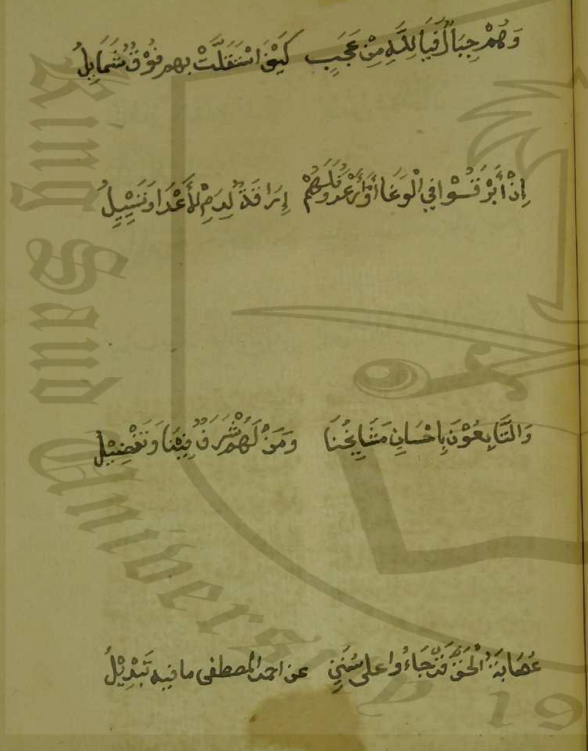 وَهُمْ جِبَالٌ فَيَا لِلَّهِ مِنْ عَجَبٍ كَيْفَ اسْتَقَلَّتْ بِهِمْ فَوْقٌ شَمَايِلُ
إِنْ أَبْرَقُوا فِي الْوَغَا أَوْ أَرْعَدُوا فَلَهُمْ إِرَاقَةٌ لِدَمِ الْأَعْدَا وَتَسْيِيلُ
وَالتَّابِعُوْنَ بِإِحْسَانٍ مَشَايِخُنَا وَمَنْ لَهُمْ شَرَفٌ فِيْنَا وَتَفْضِيْلُ
عُصَابَةُ الْحَقِّ قَدْ جَاءُوا عَلَى سَنَنٍ عن احمد المصطفى ما فيه تَبْدِيْلُ
King Saud University 19